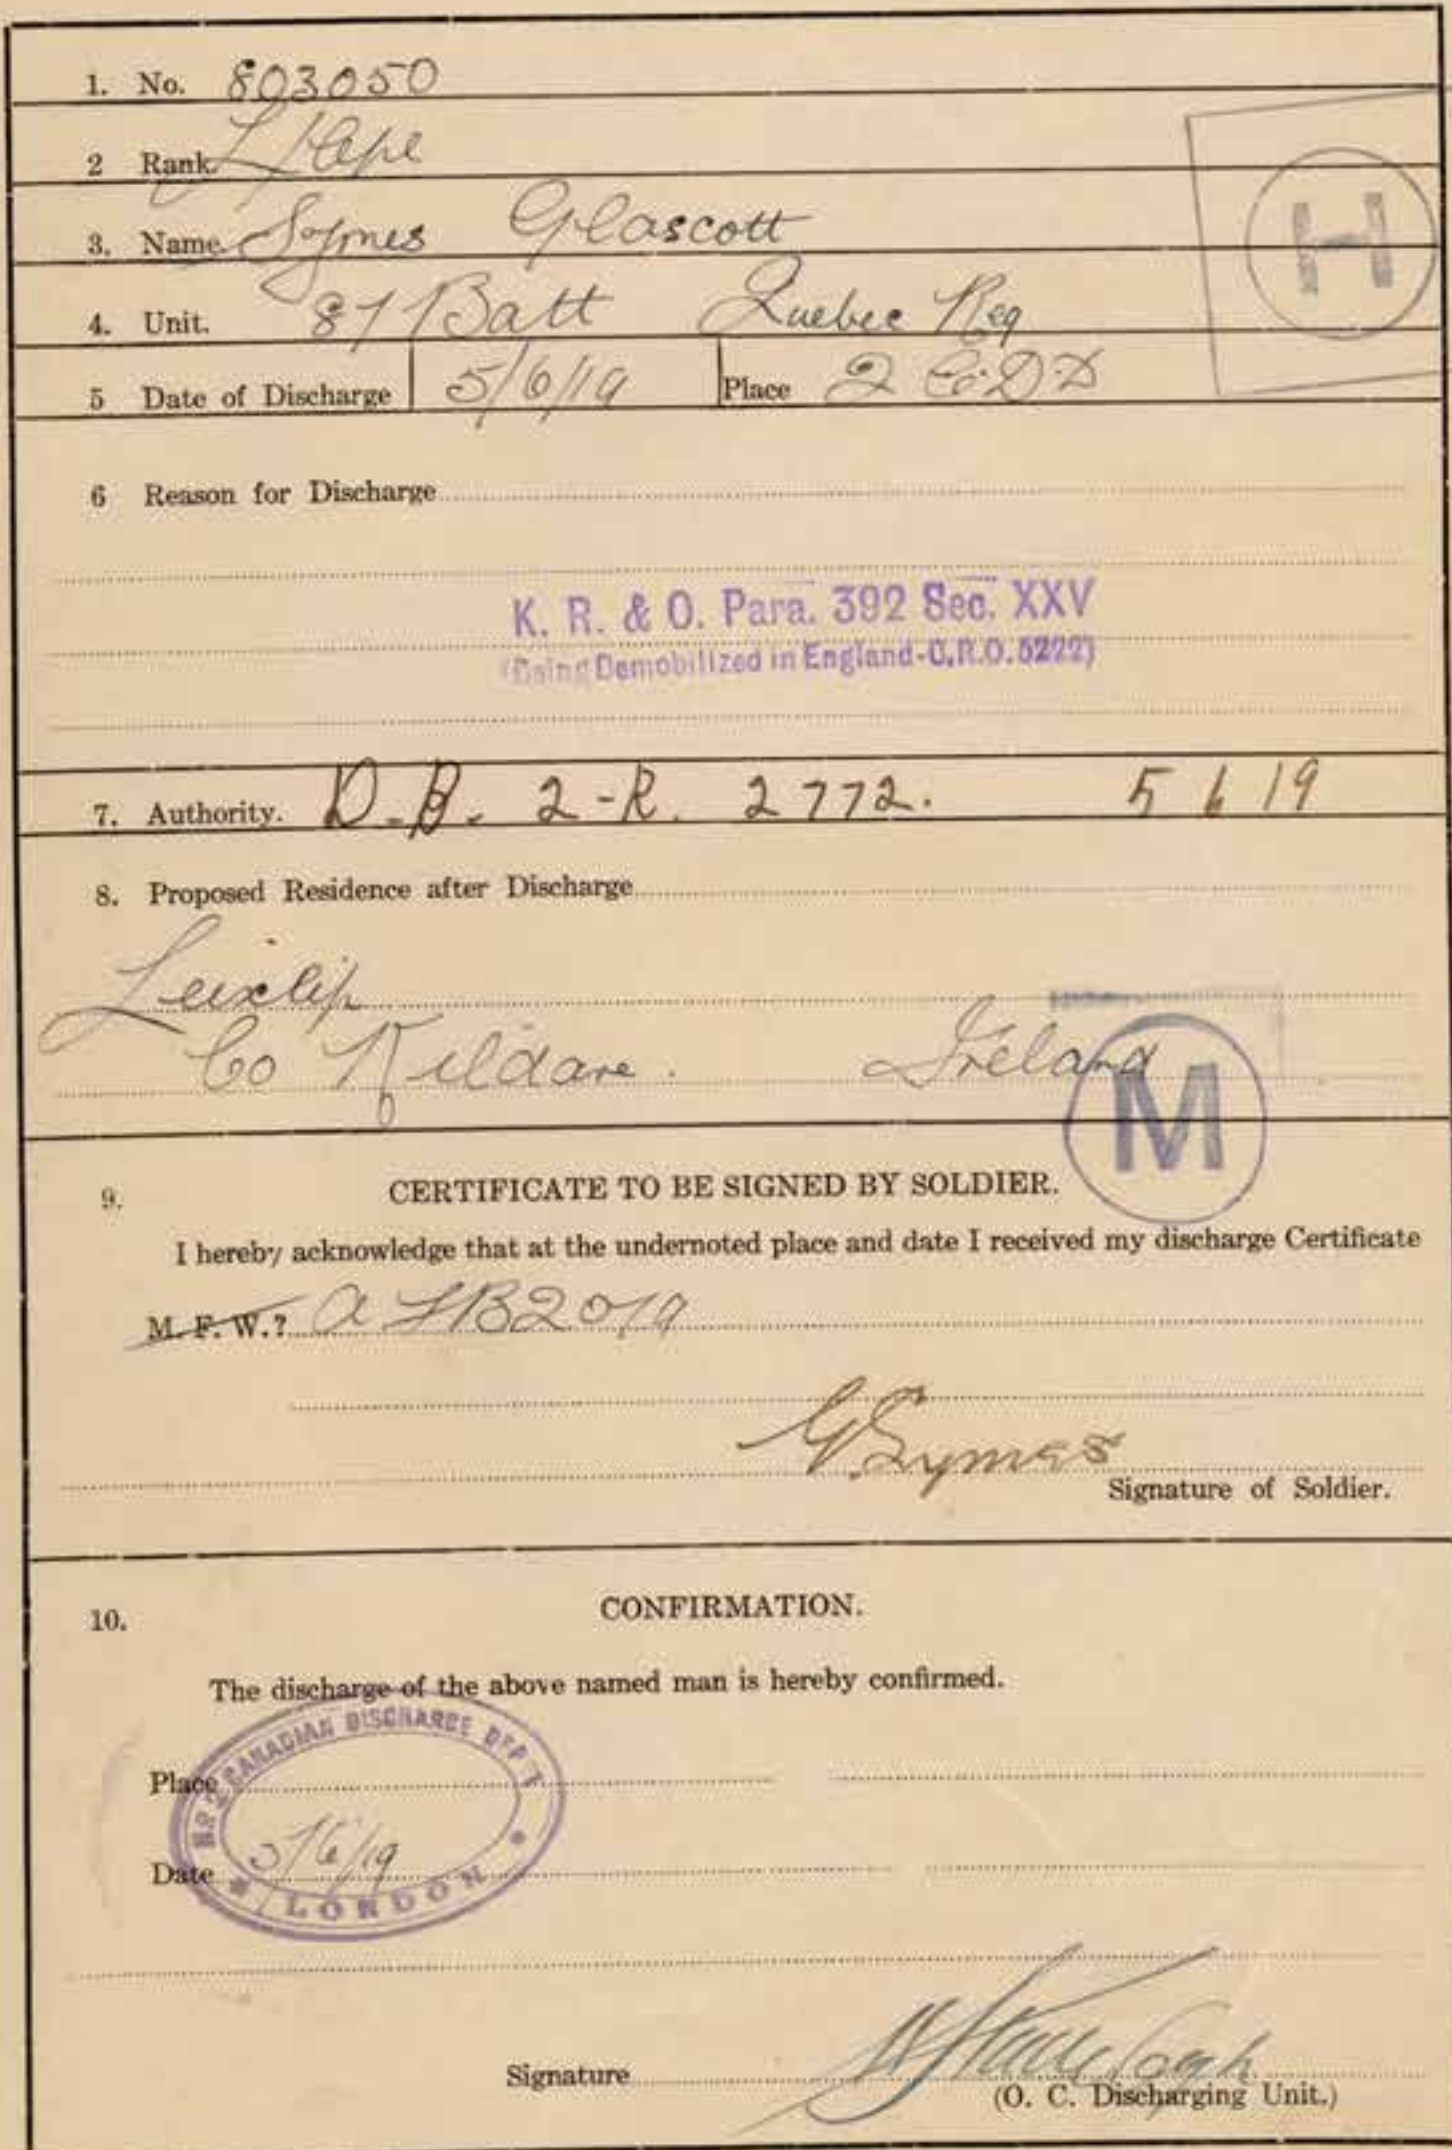 1. No. 803050
2 Rank. L/Cpl
3. Name. Symes Glascott
4. Unit. 87 Batt Quebec Reg
5 Date of Discharge 5/6/19 Place 2 C.D.D
H
6 Reason for Discharge
K. R. & O. Para. 392 Sec. XXV
(Being Demobilized in England-C.R.O. 5222)
7. Authority. D.B. 2-R. 2772. 5 6 19
8. Proposed Residence after Discharge
Leixlip
Co Kildare. Ireland
M
9. CERTIFICATE TO BE SIGNED BY SOLDIER.
I hereby acknowledge that at the undernoted place and date I received my discharge Certificate
M. F. W.? A FB2079
G. Symes
Signature of Soldier.
10. CONFIRMATION.
The discharge of the above named man is hereby confirmed.
No 2 CANADIAN DISCHARGE DEP'T
Place
Date 5/6/19
LONDON
Signature
(O. C. Discharging Unit.)